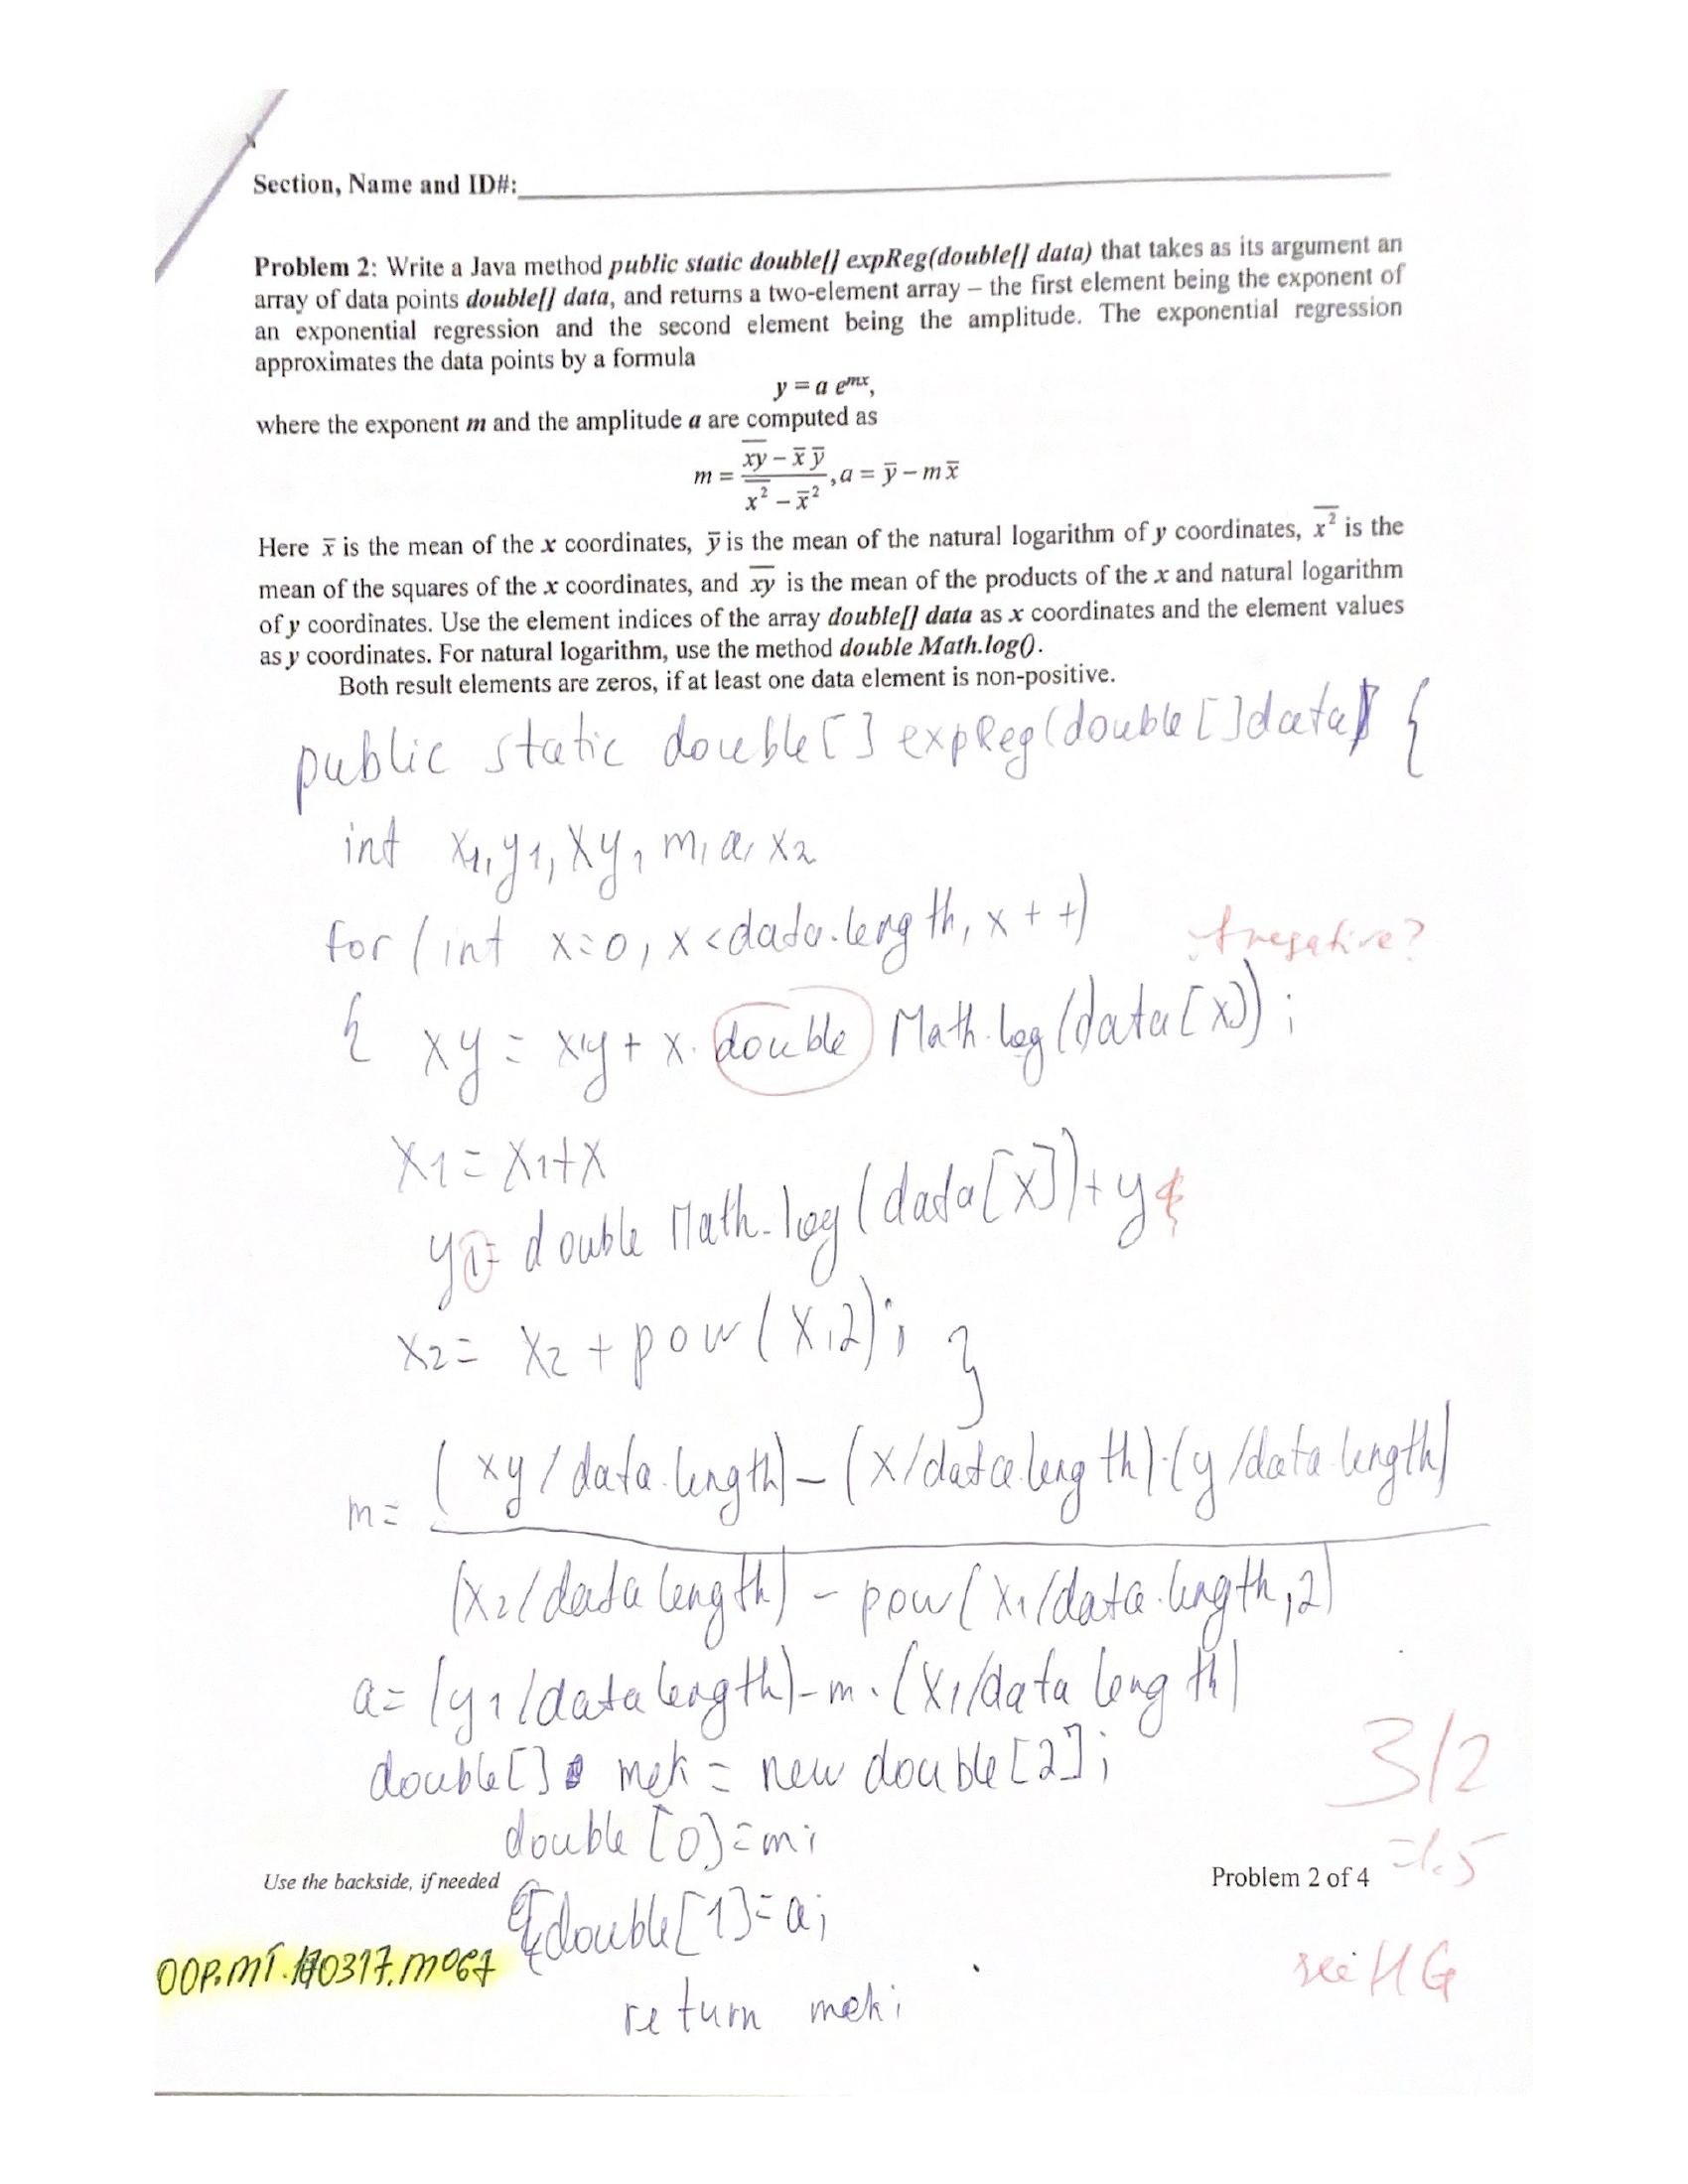 Section, Name and ID#:
Problem 2: Write a Java method public static double[] expReg(double[] data) that takes as its argument an
array of data points double[] data, and returns a two-element array – the first element being the exponent of
an exponential regression and the second element being the amplitude. The exponential regression
approximates the data points by a formula
y = a e^{mx},
where the exponent m and the amplitude a are computed as
m = \frac{\overline{xy} - \bar{x}\,\bar{y}}{\overline{x^2} - \bar{x}^2}, a = \bar{y} - m\bar{x}
Here x̄ is the mean of the x coordinates, ȳ is the mean of the natural logarithm of y coordinates, \overline{x^2} is the
mean of the squares of the x coordinates, and \overline{xy} is the mean of the products of the x and natural logarithm
of y coordinates. Use the element indices of the array double[] data as x coordinates and the element values
as y coordinates. For natural logarithm, use the method double Math.log().
Both result elements are zeros, if at least one data element is non-positive.
public static double[] expReg(double[]data) {
int x1, y1, xy, m, a, x2
for (int x=0, x<data.length, x++)
negative?
{ xy = xy + x · double Math.log(data[x]);
x1 = x1+x
y1= double Math.log(data[x])+y
x2= x2 + pow(x,2); }
m= (xy/data.length)-(x/data.length)·(y/data.length)
(x2/data length) - pow(x1/data.length,2)
a= (y1/data length)-m·(x1/data length)
double[] mek = new double[2];
3/2
double [0]=m;
=1.5
Use the backside, if needed
Problem 2 of 4
double[1]=a;
OOP.MT.170317.M067
see HG
return mek;